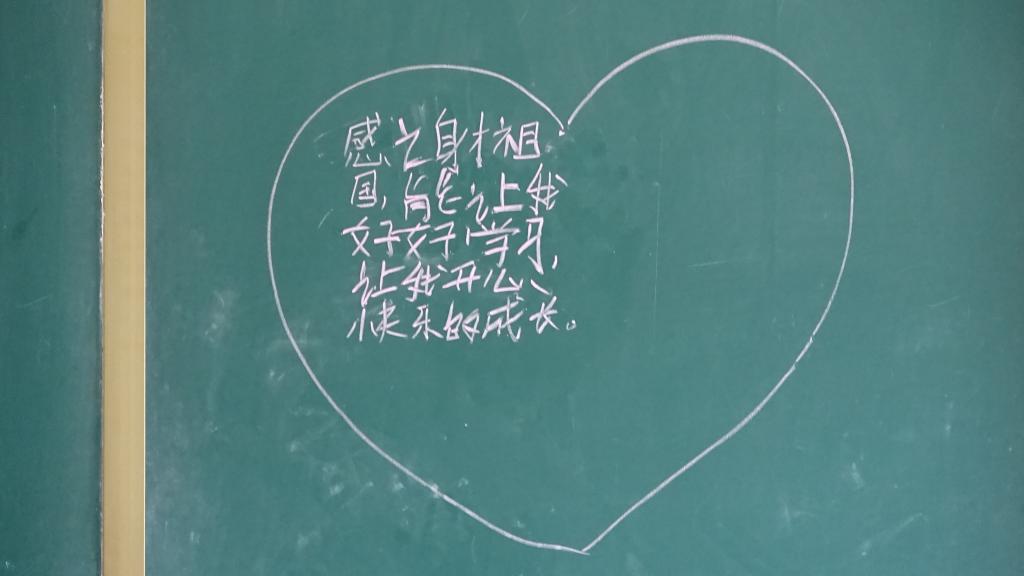 感讠身寸祖
国,能让我
好好学习,
让我开心、
快乐的成长。